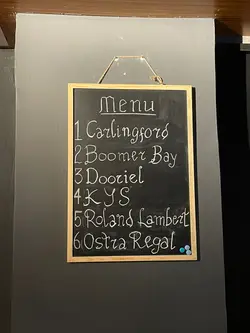 Menu
1 Carlingford
2 Boomer Bay
3 Dooriel
4 KYS
5 Roland Lambert
6 Ostra Regal